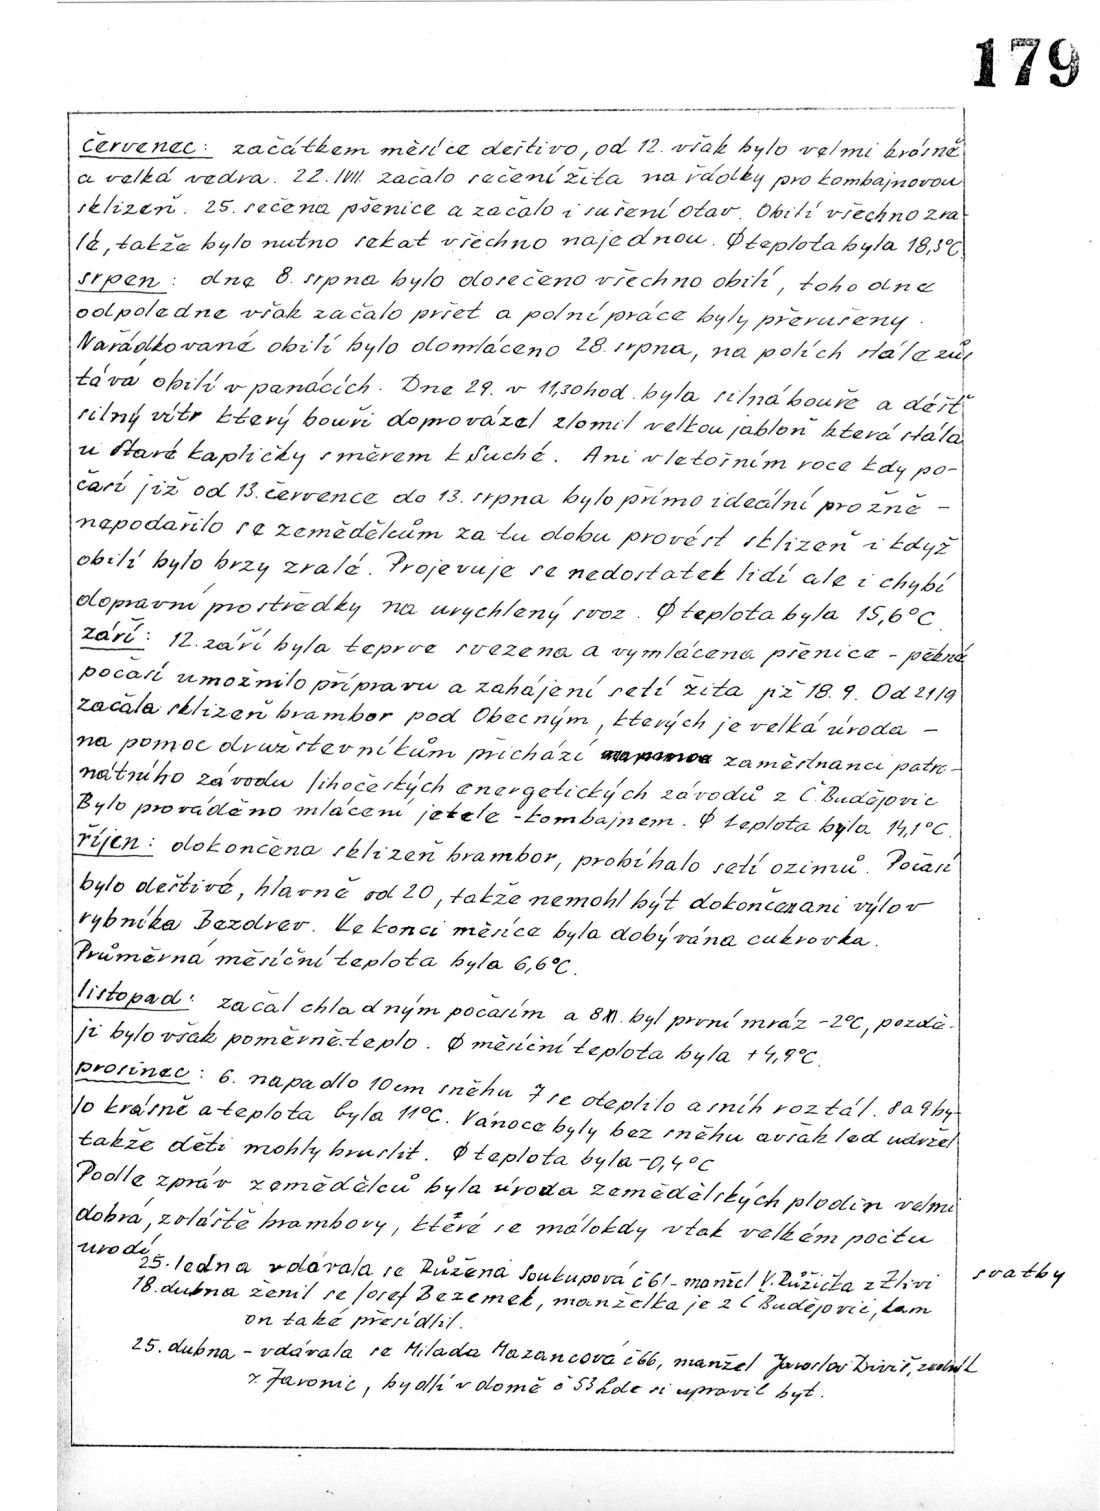 179
červenec: začátkem měsíce deštivo, od 12. však bylo velmi krásně
a velká vedra. 22./VII. začalo sečení žita na řádky pro kombajnovou
sklizeň. 25. sečena pšenice a začalo i sušení otav. Obilí všechno zra-
lé, takže bylo nutno sekat všechno najednou. Ø teplota byla 18,3°C
srpen: dne 8. srpna bylo dosečeno všechno obilí, toho dne
odpoledne však začalo pršet a polní práce byly přerušeny.
Nařádkované obilí bylo domláceno 28. srpna, na polích stále zůs
tává obilí v panácích. Dne 29. v 11,30 hod. byla silná bouře a déšť
silný vítr který bouři doprovázel zlomil velkou jabloň která stála
u staré kapličky směrem k Suché. Ani v letošním roce kdy po-
časí již od 13. července do 13. srpna bylo přímo ideální pro žně –
nepodařilo se zemědělcům za tu dobu provést sklizeň i když
obilí bylo brzy zralé. Projevuje se nedostatek lidí ale i chybí
dopravní prostředky na urychlený svoz. Ø teplota byla 15,6°C.
září: 12. září byla teprve svezena a vymlácena pšenice – pěkné
počasí umožnilo přípravu a zahájení setí žita již 18.9. Od 21/9
začala sklizeň brambor pod Obecným, kterých je velká úroda –
na pomoc družstevníkům přichází zaměstnanci patro-
nátního závodu Jihočeských energetických závodů z Č Budějovic
Bylo prováděno mlácení jetele – kombajnem. Ø teplota byla 14,1°C.
říjen: dokončena sklizeň brambor, probíhalo setí ozimů. Počasí
bylo deštivé, hlavně od 20, takže nemohl být dokončen ani výlov
rybníka Bezdrev. Ke konci měsíce byla dobývána cukrovka.
Průměrná měsíční teplota byla 6,6°C.
listopad: začal chladným počasím a 8XI. byl první mráz -2°C, pozdě-
ji bylo však poměrně teplo. Ø měsíční teplota byla +4,9°C.
prosinec: 6. napadlo 10 cm sněhu 7 se oteplilo a sníh roztál. 8 a 9 by-
lo krásně a teplota byla 11°C. Vánoce byly bez sněhu avšak led udržel
takže děti mohly bruslit. Ø teplota byla -0,4°C
Podle zpráv zemědělců byla úroda zemědělských plodin velmi
dobrá, zvláště brambory, které se málokdy v tak velkém počtu
urodí.
25. ledna vdávala se Růžena Soukupová č 61 – manžel V. Růžička z Zlivi
svatby
18. dubna ženil se Josef Bezemek, manželka je z Č Budějovic, tam
on také přesídlil.
25. dubna – vdávala se Milada Mazancová č 66, manžel Jaroslav Diviš,
z Javonic, bydlí v domě č 53 kde si upravil byt.